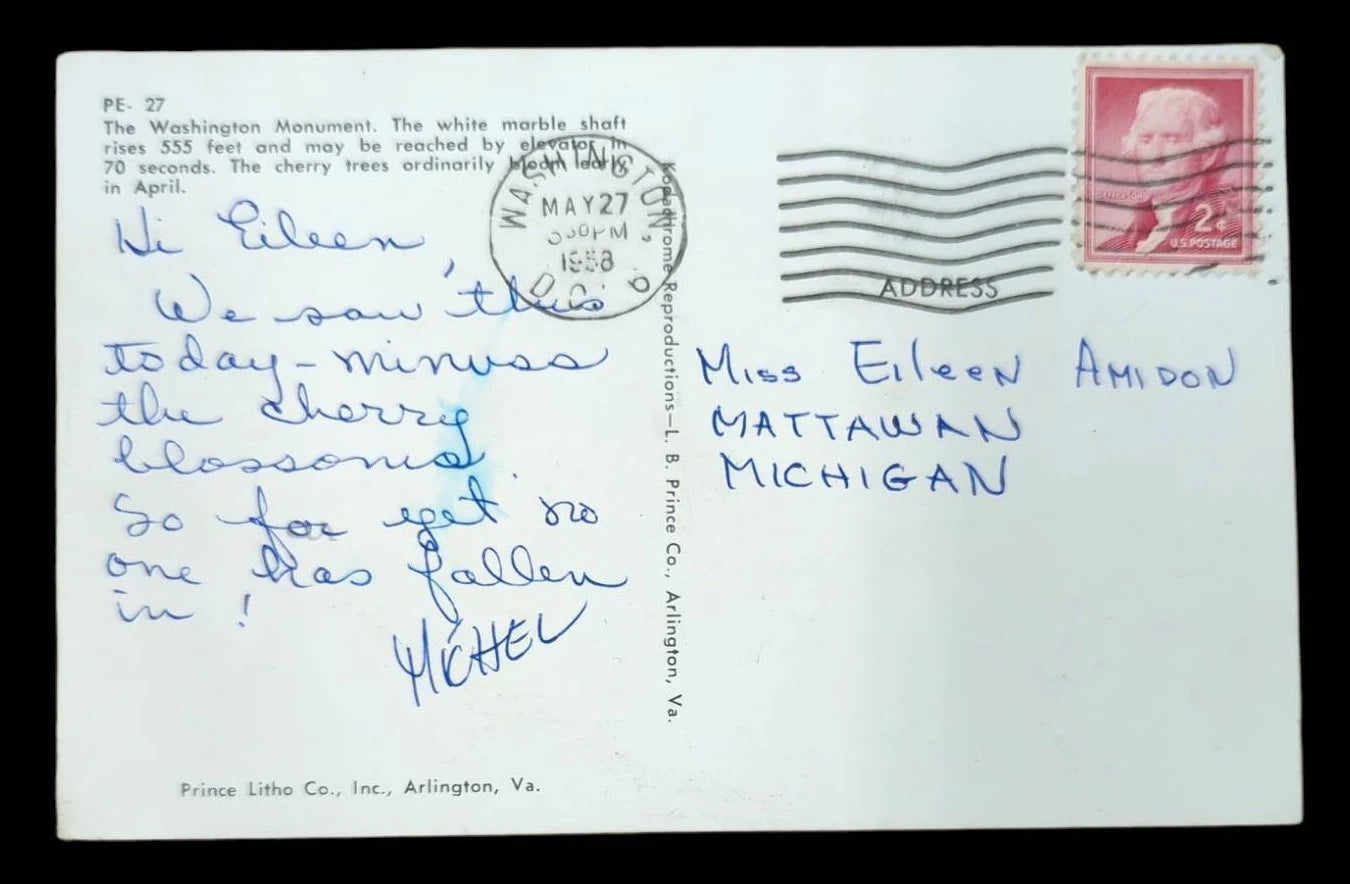 PE- 27
The Washington Monument. The white marble shaft
rises 555 feet and may be reached by elevator in
70 seconds. The cherry trees ordinarily bloom early
in April.
WASHINGTON,
D.C.
MAY 27
PM
1958
JEFFERSON
2¢
U.S. POSTAGE
ADDRESS
Hi Eileen,
We saw this
today - minuss
the cherry
blossoms.
So far yet no
one has fallen
in!
MICHEL
Kodachrome Reproductions—L. B. Prince Co., Arlington, Va.
Miss Eileen AMIDON
MATTAWAN
MICHIGAN
Prince Litho Co., Inc., Arlington, Va.